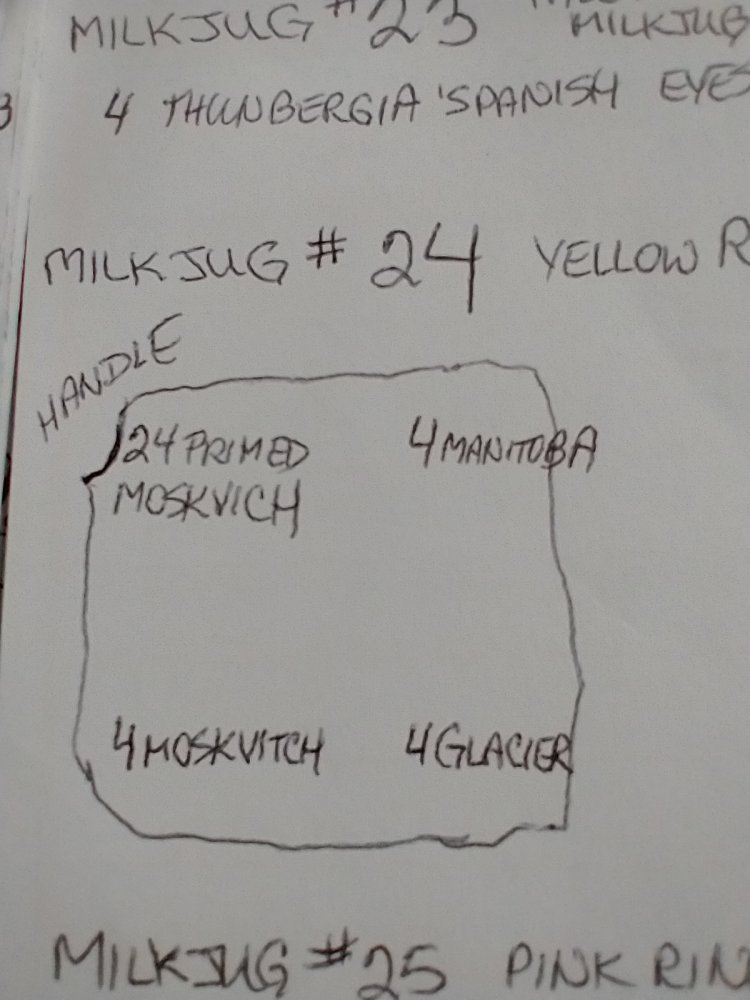 MILKJUG #23 MILKJUG
3 4 THUNBERGIA 'SPANISH EYES
MILKJUG # 24 YELLOW R
HANDLE
24 PRIMED 4 MANITOBA
MOSKVICH
4 MOSKVITCH 4 GLACIER
MILKJUG #25 PINK RIN